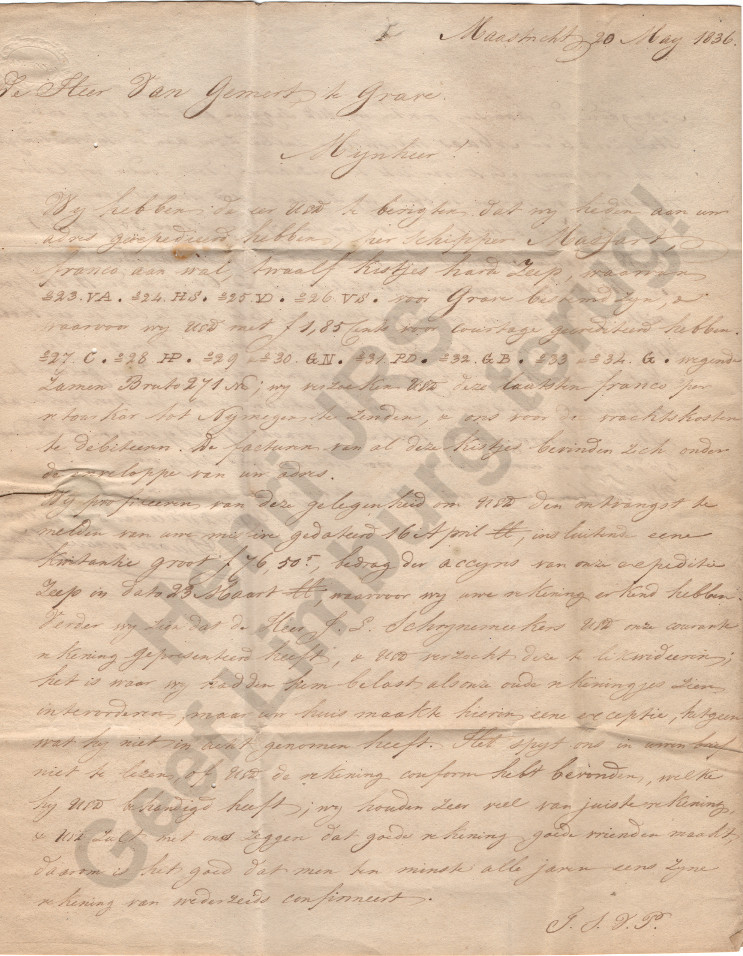 Maastricht, 20 May 1836.
De Heer Van Gemert te Grave.
Mijnheer!
Wy hebben de eer UEd te berigten dat wy heden aan uw
adres geexpedieerd hebben, per schipper Masfart
franco aan wal, twaalf kistjes hard Zeep, waarvan
№23. VA. №24. HS. №25 V D. №26. VS. voor Grave bestemd zyn, &
waarvoor wy UEd met f 1,85 Cents voor courtage gecrediteerd hebben.
№27 C. №28 HP. №29 a №30. GN. №31. PD. №32. GB. №33 a №34. G. wegende
Zamen Bruto 271 ; wy verzoeken UEd deze laatsten franco per
tot Nymegen te zenden, & ons voor de vrachtkosten
te debiteeren. De facturen van al deze kistjes bevinden zch onder
de enveloppe van uw adres.
Wy profiteeren van deze gelegenheid om UEd den ontvangst te
melden van uwe missive gedateerd 16 April , insluitende eene
kwitantie groot f 76,50, bedrag der accyns van onze expeditie
Zeep in dato 23 Maart , waarvoor wy uwe rekening erkend hebben.
Verder wy zien dat de Heer J. L. Schrynemeekers UEd onze courante
rekening gepresenteerd heeft, & UEd verzocht deze te likwideeren;
het is waar wy hadden hem belast al onze oude rekeningjes
intevorderen, maar uw huis maakte hierin eene exceptie, hetgeen
wat hy niet in acht genomen heeft. Het spyt ons in uwen brief
niet te lezen of UEd de rekening conform hebt bevonden, welke
hy UEd behandigd heeft; wy houden zeer veel van juiste rekening,
& UEd zult met ons zeggen dat goede rekening goede vrienden maakt,
daarom is het goed dat men ten minste alle jaren eens zyne
rekening van wederzeiss confirmeert.
J. S. V. P.
Henri JRS
Geef Limburg terug!